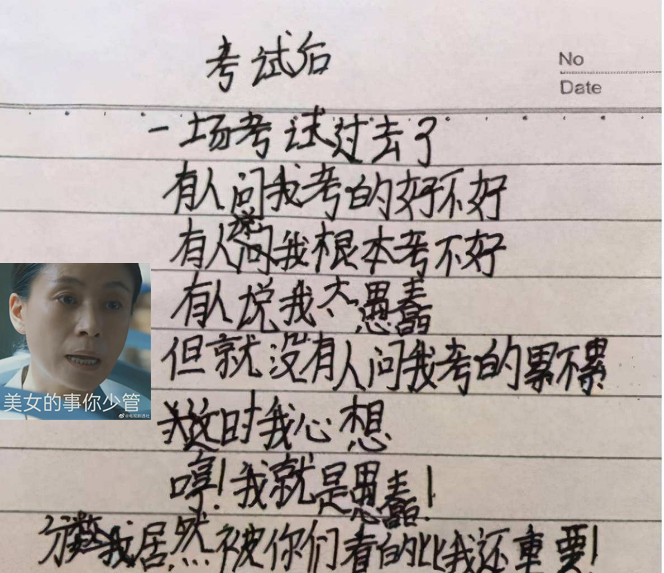 考试后
No
Date
一场考试过去了
有人问我考的好不好
有人说我根本考不好
有人说我太愚蠢
但就没有人问我考的累不累
这时我心想
哼！我就是愚蠢！
分数居然被你们看的比我还重要！
美女的事你少管